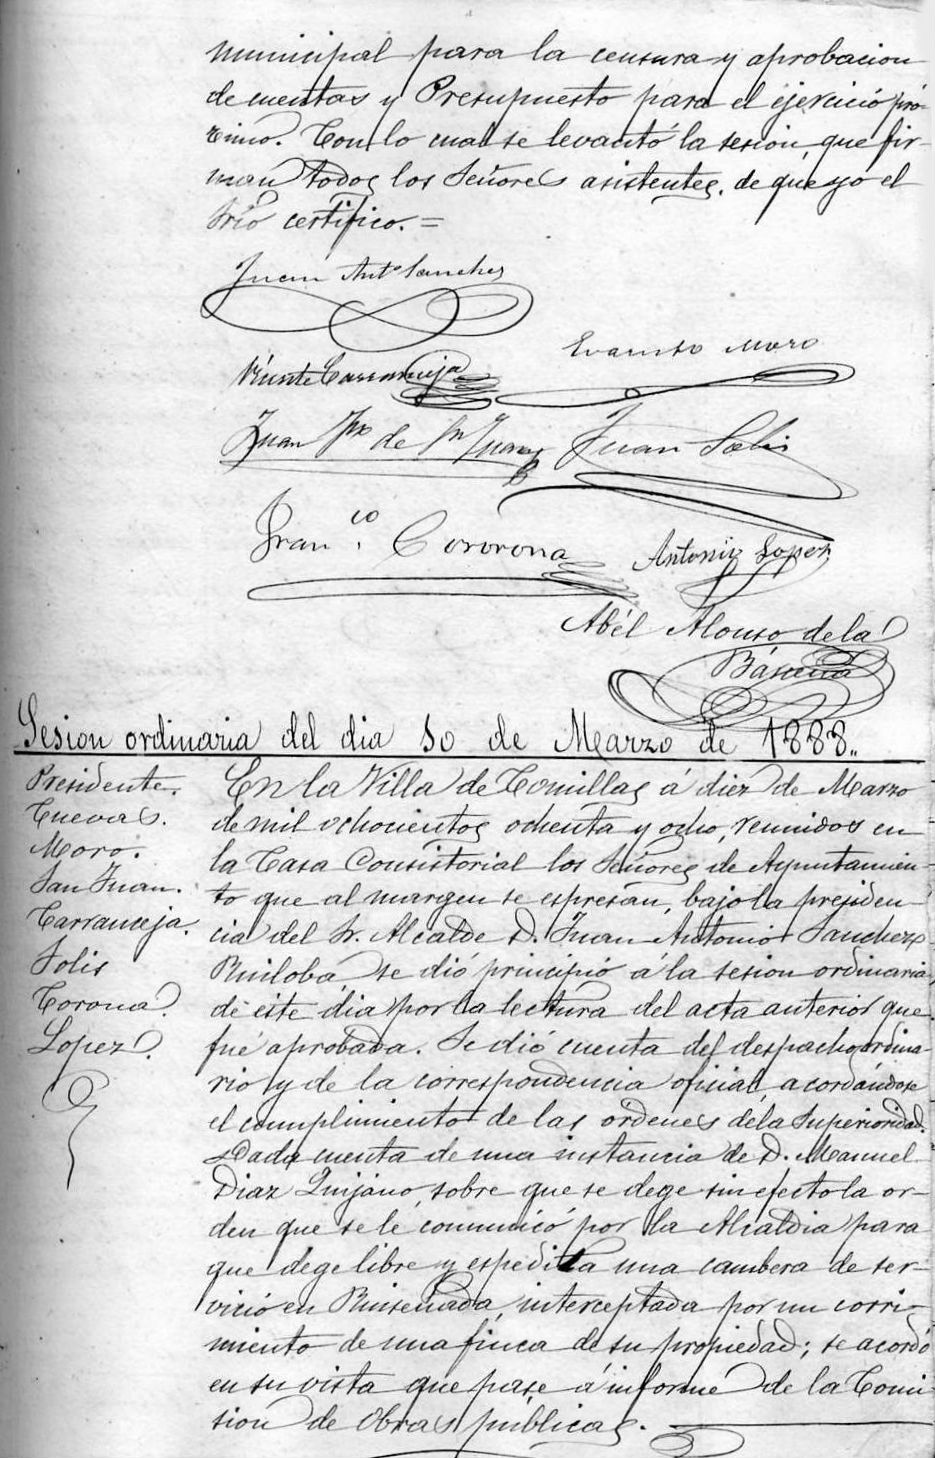 municipal para la censura y aprobacion
de cuentas y Presupuesto para el ejercicio pró-
ximo. Con lo cual se levantó la sesion, que fir-
man todos los Señores asistentes, de que yo el
Srio certifico. =
Juan Ant.º Sanchez
Evaristo Moro
Vicente Carranceja
Juan de Sn Juan
Juan Solis
Fran.co Cororona
Antonio Lopez
Abél Alonso de la
Bárcena
Sesion ordinaria del dia 10 de Marzo de 1888.
Presidente.
Cuevas.
Moro.
San Juan.
Carranceja.
Solis
Corona.
Lopez.
En la Villa de Comillas á diez de Marzo
de mil ochocientos ochenta y ocho, reunidos en
la Casa Consistorial los Señores de Ayuntamien-
to que al margen se espresan, bajo la presiden-
cia del Sr. Alcalde D. Juan Antonio Sanchez
Ruiloba, se dió principio á la sesion ordinaria
de este dia por la lectura del acta anterior que
fué aprobada. Se dió cuenta del despacho ordina-
rio y de la correspondencia oficial, acordándose
el cumplimiento de las ordenes de la Superioridad.
Dada cuenta de una instancia de D. Manuel
Diaz Quijano, sobre que se dege sin efecto la or-
den que se le comunicó por la Alcaldia para
que dege libre y espedita una cambera de ser-
vicio en Ruiseñada, interceptada por un corri-
miento de una finca de su propiedad; se acordó
en su vista que pase á informe de la Comi
sion de Obras públicas.